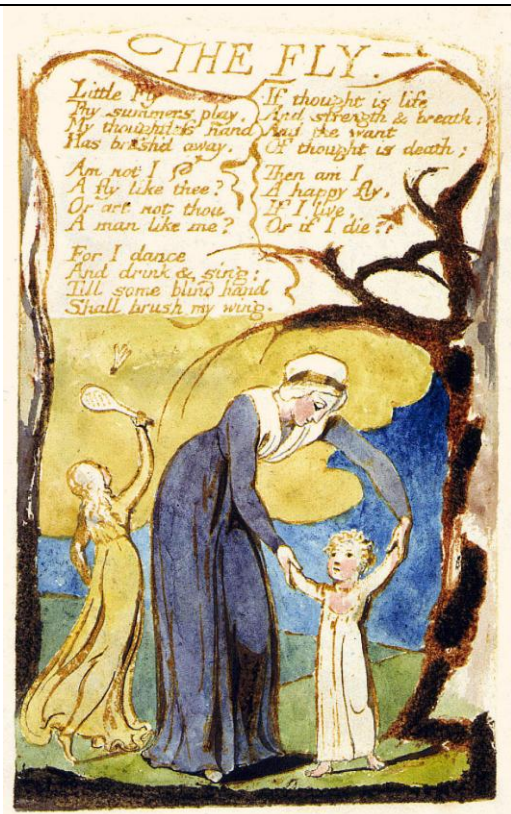 THE FLY.
Little Fly
Thy summers play,
My thoughtless hand
Has brush'd away.
Am not I
A fly like thee?
Or art not thou
A man like me?
For I dance
And drink & sing:
Till some blind hand
Shall brush my wing.
If thought is life
And strength & breath:
And the want
Of thought is death;
Then am I
A happy fly,
If I live,
Or if I die.